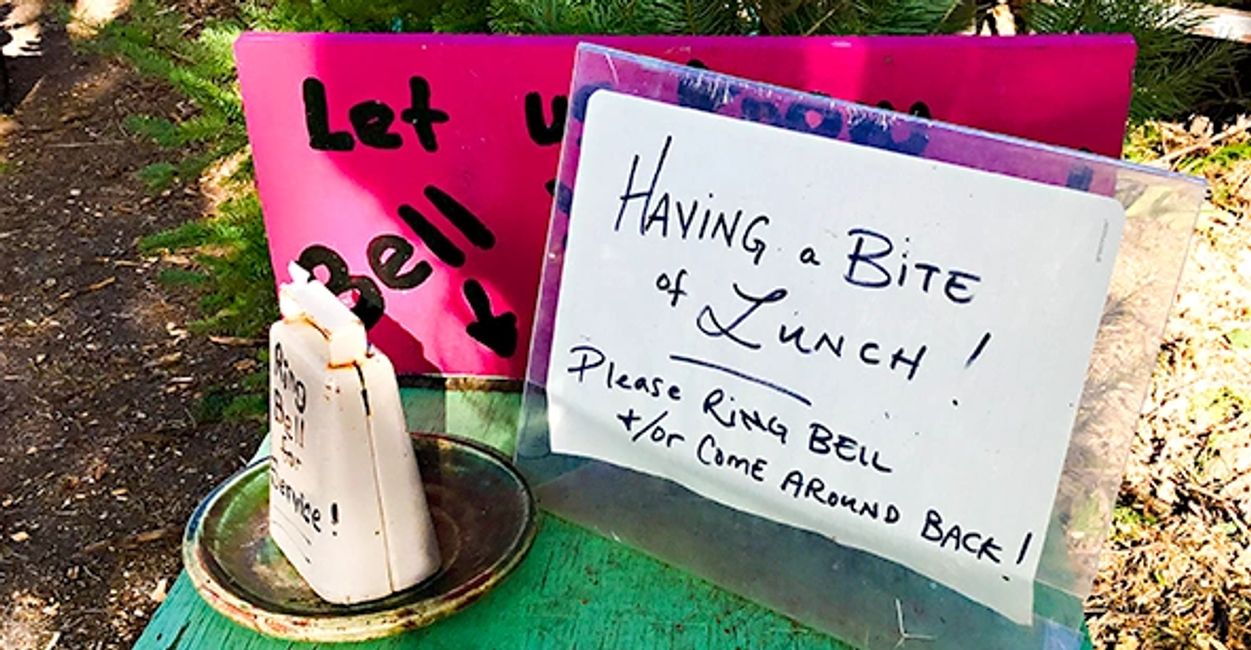 Let
Bell
HAVING a BiTE
of LUNCH!
Please RiNG BELL
+/or COME AROUND BACK!
Ring
Bell
for
Service!